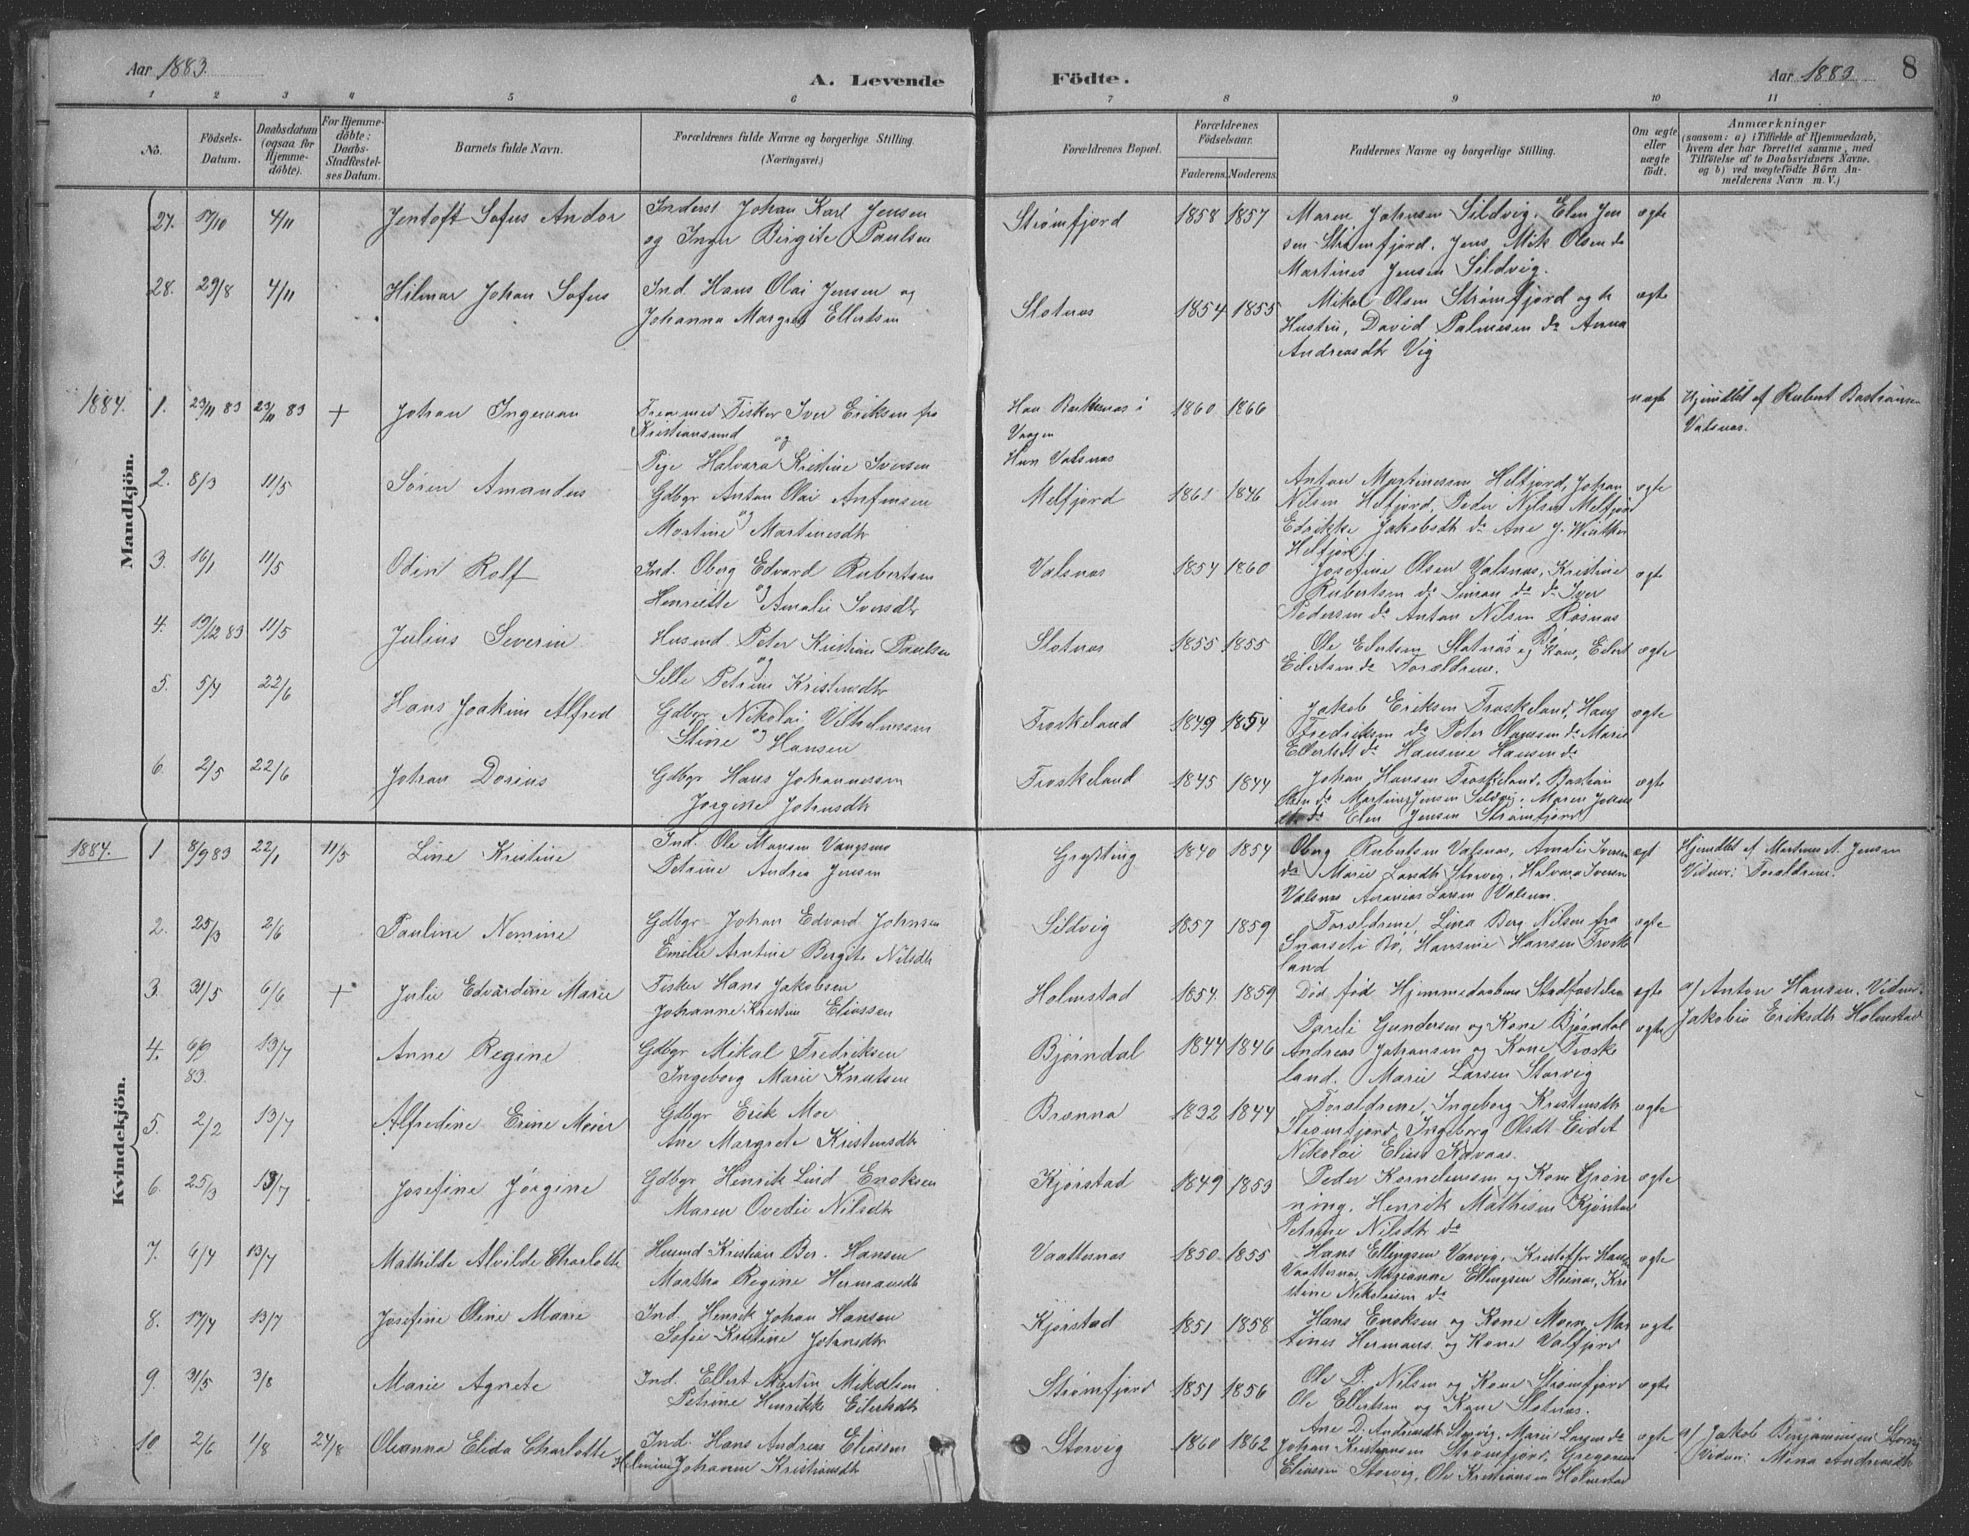 Aar 1883.
A. Levende
Födte.
Aar 1883
8
1 2 3 4 5 6 7 8 9 10 11
No.
Födsels-Datum.
Daabsdatum (ogsaa for Hjemme-döbte).
For Hjemme-döbte: Daabs-Stadfæstel-ses Datum.
Barnets fulde Navn.
Forældrenes fulde Navne og borgerlige Stilling. (Næringsvei.)
Forældrenes Bopæl.
Forældrenes Födselsaar.
Faderens. Moderens.
Faddernes Navne og borgerlige Stilling.
Om ægte eller uægte födt.
Anmærkninger
(saasom: a) i Tilfælde af Hjemmedaab, hvem der har forrettet samme, med Tilföielse af to Daabsvidners Navne. og b) ved uægtefödte Börn An-melderens Navn m. V.)
27. 17/10 4/11 Jentoft Sofus Andor
Inderst Johan Karl Jensen
og Inger Birgite Paulsen
Strømfjord 1858 1857
Maren Johnsen Sildvig, Elen Jen
sen Strømfjord, Jens Mik Olsen do
Martines Jensen Sildvig.
ægte
28. 29/8 4/11 Hilmar Johan Sofus
Ind. Hans Olai Jensen og
Johanna Margret Ellertsen
Slotnæs 1854 1855
Mikal Olsen Strømfjord og h
Hustru, David Palmesen do Anna
Andreasdtr Vig
ægte
Mandkjön.
1884. 1. 23/11 83 23/11 83 + Johan Ingeman
Fisker Iver Eriksen fra
Kristiansund
og
Pige Halvara Kristine Iversen
Han Barkenæs i
Vaagen
Hun Valsnæs
1860 1866
uægte
Hjemdbt af Rubert Bastiansen
Valsnæs.
2. 8/3 11/5 Søren Amandus
Gdbgr Anton Olai Anfinsen
og
Martine Martinesdtr
Melfjord 1861 1846
Anton Martinessen Helfjord, Johan
Nilsen Helfjord, Peder Nilsen Melfjord
Edrikke Jakobsdtr do Ane J. Winther
Helfjord.
ægte
3. 16/1 11/5 Odin Rolf
Ind. Oberg Edvard Rubertsen
og
Henriette Amalie Iversdtr
Valsnæs 1854 1860
Josefine Olsen Valsnæs, Kristine
Rubertsen do Simon do do Iver
Pedersen do Anton Nilsen Røsnæs
ægte
4. 19/12 83 11/5 Julius Severin
Husmd. Peter Kristian Paulsen
og
Sille Petrine Kristensdtr
Slotnæs 1855 1855
Ole Eilertsen Slotnæs og Kone, Eilert
Eilertsen do Forældrene.
ægte
5. 5/4 22/6 Hans Joakim Alfred
Gdbgr Nikolai Vilhelmssen
og
Stine Hansen
Froskeland 1849 1854
Jakob Eriksen Froskeland, Hans
Fredriksen do Peter Olausen do Marie
Ellertsdt do Hansine Hansen do
ægte
6. 2/5 22/6 Johan Dorius
Gdbgr Hans Johannessen
Jorgine Johnsdtr
Froskeland 1845 1844
Johan Hansen Froskeland, Bastian
Olsen do Martines Jensen Sildvig, Maren Johns
dtr do Elen Jensen Strømfjord
ægte
Kvindekjön.
1884. 1 8/9 83 22/1 11/5 Line Kristine
Ind. Ole Monsen Vangsnæs
Petrine Andrea Jensen
Grytting 1840 1854
Oberg Rubertsen Valsnæs, Amalie Iversen
do Marie Larsdtr Storvig, Halvara Iversen
Valsnæs Ananias Larsen Valsnæs.
ægt
Hjemdbt af Martines A. Jensen
Vidner: Forældrene.
2. 25/3 2/6 Pauline Nomine
Gdbgr Johan Edvard Johnsen
Emelie Arntine Bergite Nilsdtr
Sildvig 1857 1859
Forældrene, Lina Berg Nilsen fra
Snarset i Bø, Hansine Hansen Froske
land
ægte
3. 31/5 6/6 + Julie Edvardine Marie
Fisker Hans Jakobsen
Johanne Kristine Eliassen
Holmstad 1854. 1859
Død før Hjemmedaabens Stadfæstelse
ægte
a) Anton Hansen. Vidner
Jakobia Eriksdtr Holmstad
4. 6/9 83. 13/7 Anne Regine
Gdbgr Mikal Fredriksen
Ingeborg Marie Knutsen
Bjørndal 1844 1846
Pareli Gundersen og Kone Bjørndal
Andreas Johansen og Kone Froske
land. Marie Larsen Storvig
ægte
5. 2/2 13/7 Alfredine Erine Meier
Gdbgr Erik Moe
Ane Margrete Kristensdtr
Brænna 1832 1844
Forældrene, Ingeborg Kristensdtr
Strømfjord, Ingeborg Olsdt Eidet
Nikolai Elias Kavaas.
ægte
6. 25/3 13/7 Josefine Jørgine
Gdbgr Henrik Lind Enoksen
Maren Ovedie Nilsdtr
Kjørstad 1849 1853
Peder Korneliussen og Kone Grøn
ning. Henrik Mathisen Kjørstad
Petrine Nilsdtr do
ægte
7. 6/4 13/7 Mathilde Alvilde Charlotte
Husmd. Kristian Ber. Hansen
Martha Regine Hermansdtr
Vaatternæs 1850. 1855
Hans Ellingsen Varvig, Kristoffer Hans
Vaatternæs, Marianne Ellingsen Finnæs, Kri
stine Nikolaisen do
ægte
8. 17/4 13/7 Josefine Oline Marie
Ind. Henrik Johan Hansen
Sofie Kristine Johnsdtr
Kjørstad 1851 1858
Hans Enoksen og Kone Moen, Mar
tines Hermans. og Kone Valfjord
ægte
9. 31/5 3/8 Marie Agnete
Ind. Ellert Martin Mikalsen
Petrine Henrikke Eilertsdtr
Strømfjord 1851 1856
Ole P. Nilsen og Kone Strømfjord
Ole Ellertsen og Kone Slotnæs.
ægte
10. 2/6 1/8 24/8 Oleanna Elida Charlotte
Helmine
Ind. Hans Andreas Eliassen
Johanne Kristiansdtr
Storvig 1860 1862
Ane D. Andreasdtr Storvig, Marie Larsen do
Johan Kristiansen Strømfjord, Gregorius
Eliassen Storvig, Ole Kristiansen Holmstad
ægte
a) Jakob Benjaminsen Storvig
Vidner: Mina Andreasdtr